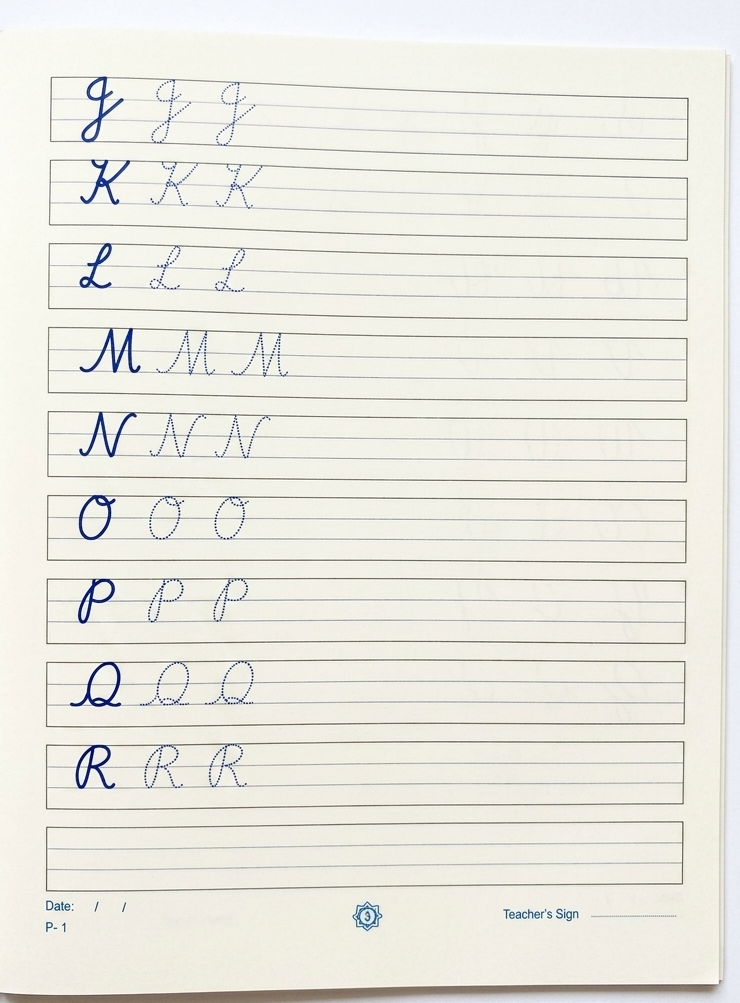 J J J
K K K
L L L
M M M
N N N
O O O
P P P
Q Q Q
R R R
Date: / /
3
Teacher's Sign
P- 1